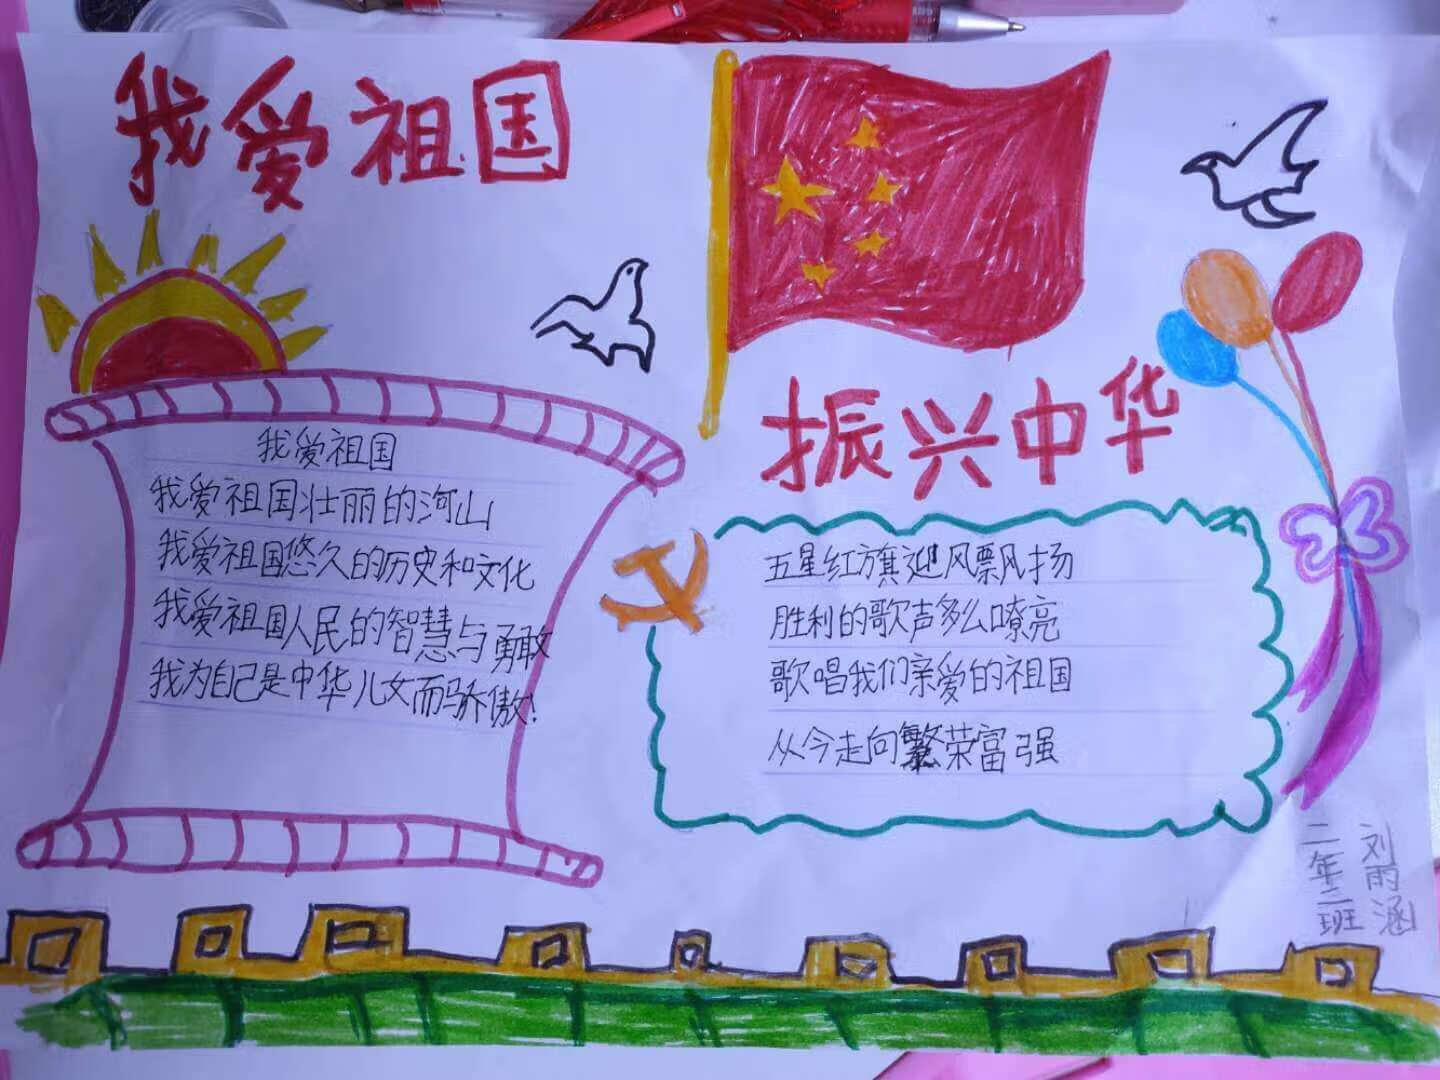 我爱祖国
振兴中华
我爱祖国
我爱祖国壮丽的河山
我爱祖国悠久的历史和文化
我爱祖国人民的智慧与勇敢
我为自己是中华儿女而骄傲!
五星红旗迎风飘扬
胜利的歌声多么嘹亮
歌唱我们亲爱的祖国
从今走向繁荣富强
二年二班
刘雨涵